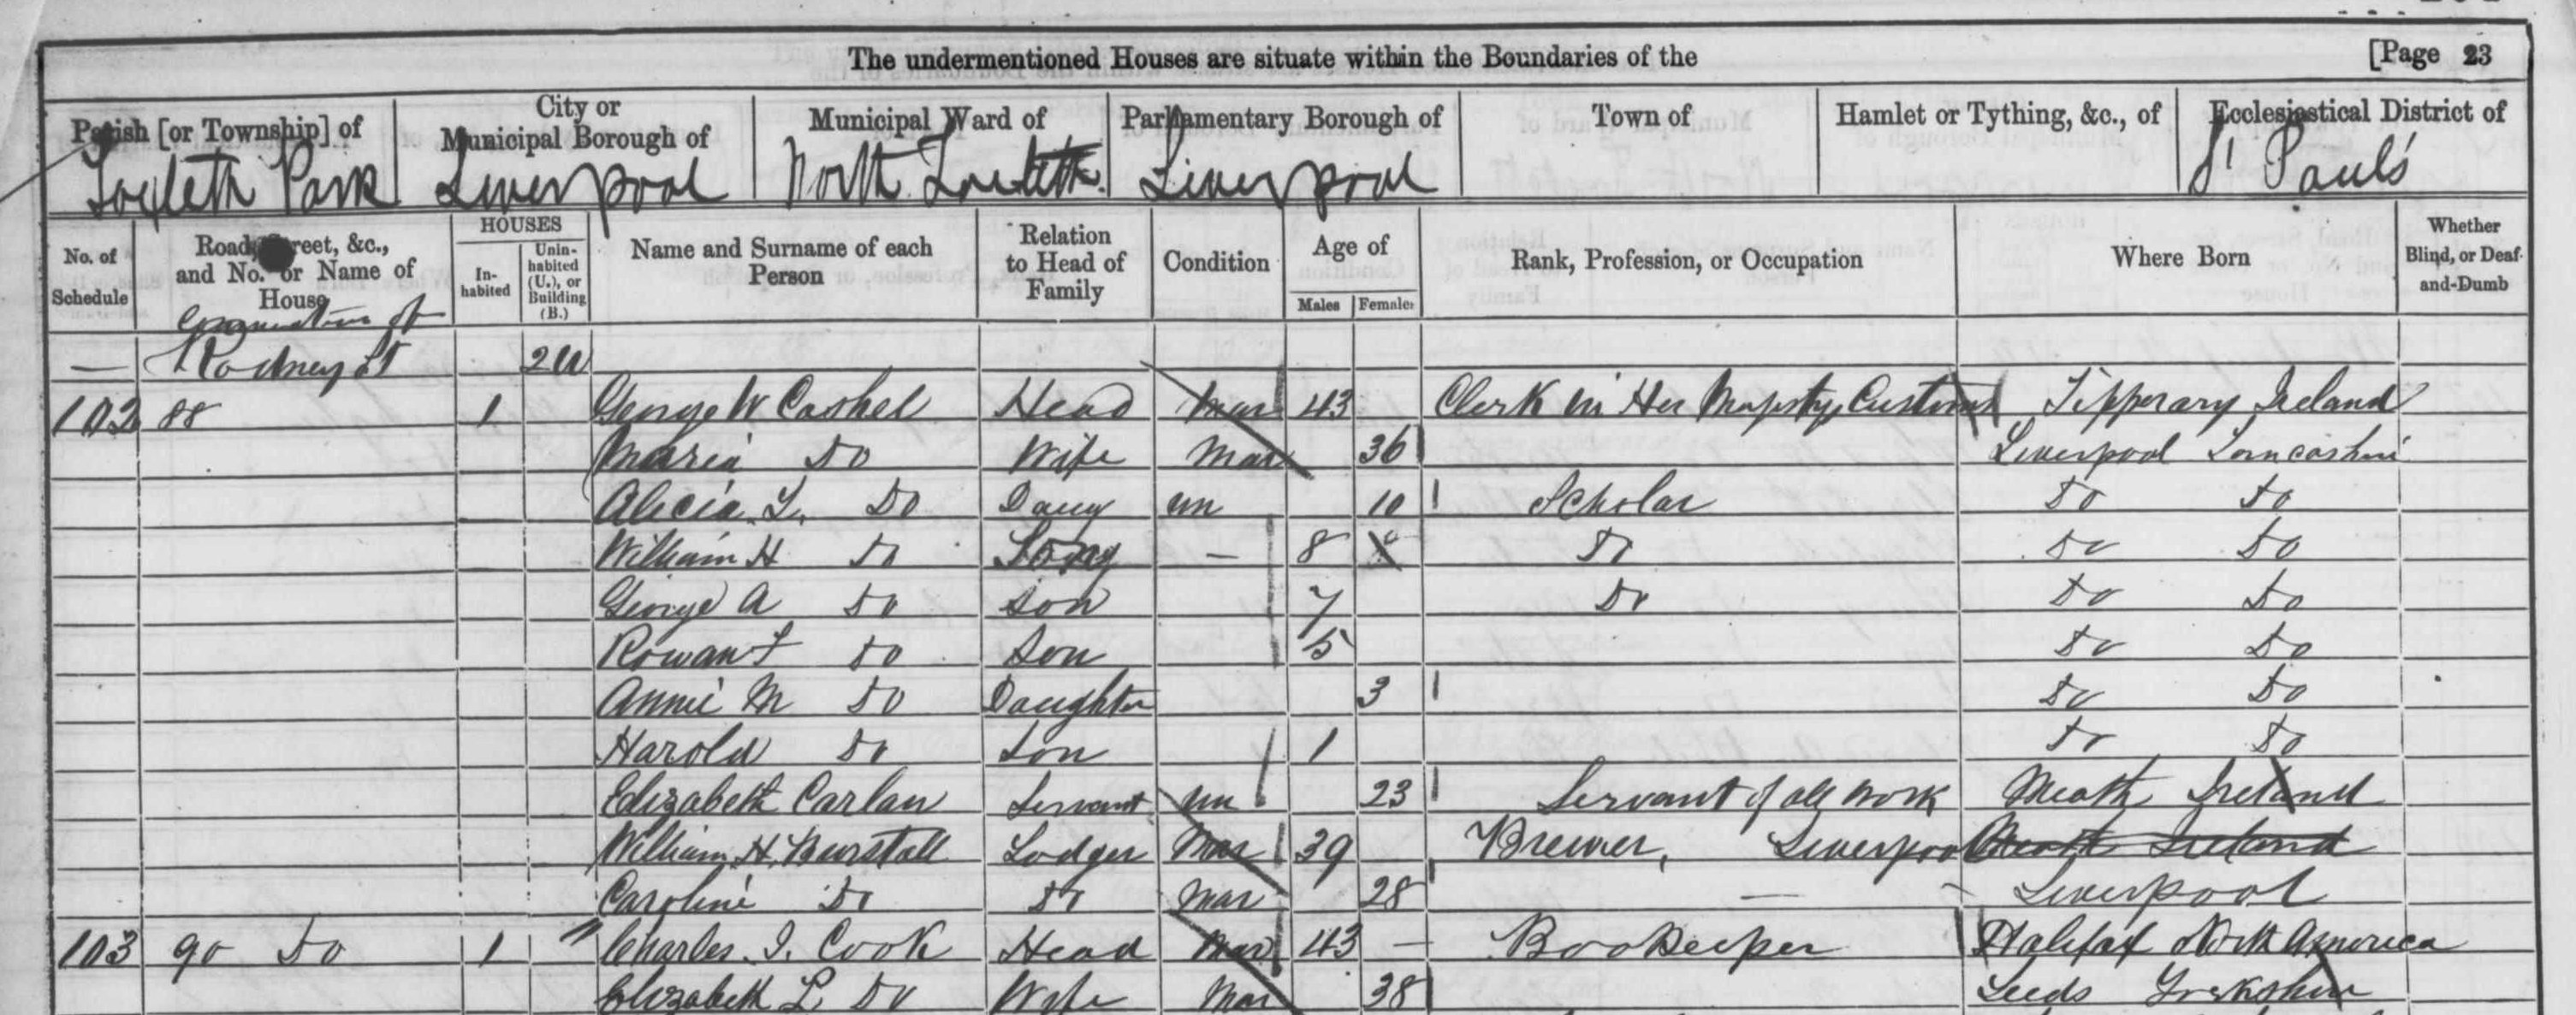 The undermentioned Houses are situate within the Boundaries of the [Page 23
Parish [or Township] of City or Municipal Borough of Municipal Ward of Parliamentary Borough of Town of Hamlet or Tything, &c., of Ecclesiastical District of
Toxteth Park Liverpool North Toxteth Liverpool St Paul's
No. of Schedule Road, Street, &c., and No. or Name of House HOUSES In-habited Unin-habited (U.), or Building (B.) Name and Surname of each Person Relation to Head of Family Condition Age of Males Females Rank, Profession, or Occupation Where Born Whether Blind, or Deaf-and-Dumb
— Rodney St 2U
102 88 1 George W Cashel Head Mar 43 Clerk in Her Majestys Customs Tipperary Ireland
Maria Do Wife Mar 36 Liverpool Lancashire
Alicia L. Do Daug un 10 Scholar Do Do
William H Do Son — 8 Do Do Do
George A Do Son 7 Do Do Do
Rowan Do Son 5 Do Do
Annie M Do Daughter 3 Do Do
Harold Do Son 1 Do Do
Elizabeth Carlan Servant un 23 Servant of all work Meath Ireland
William H. Burstall Lodger Mar 39 Brewer, Liverpool Meath Ireland
Caroline Do Do Mar 28 — Liverpool
103 90 Do 1 Charles I. Cook Head Mar 43 — Bookeeper Halifax North America
Elizabeth L Do Wife Mar 38 Leeds Yorkshire